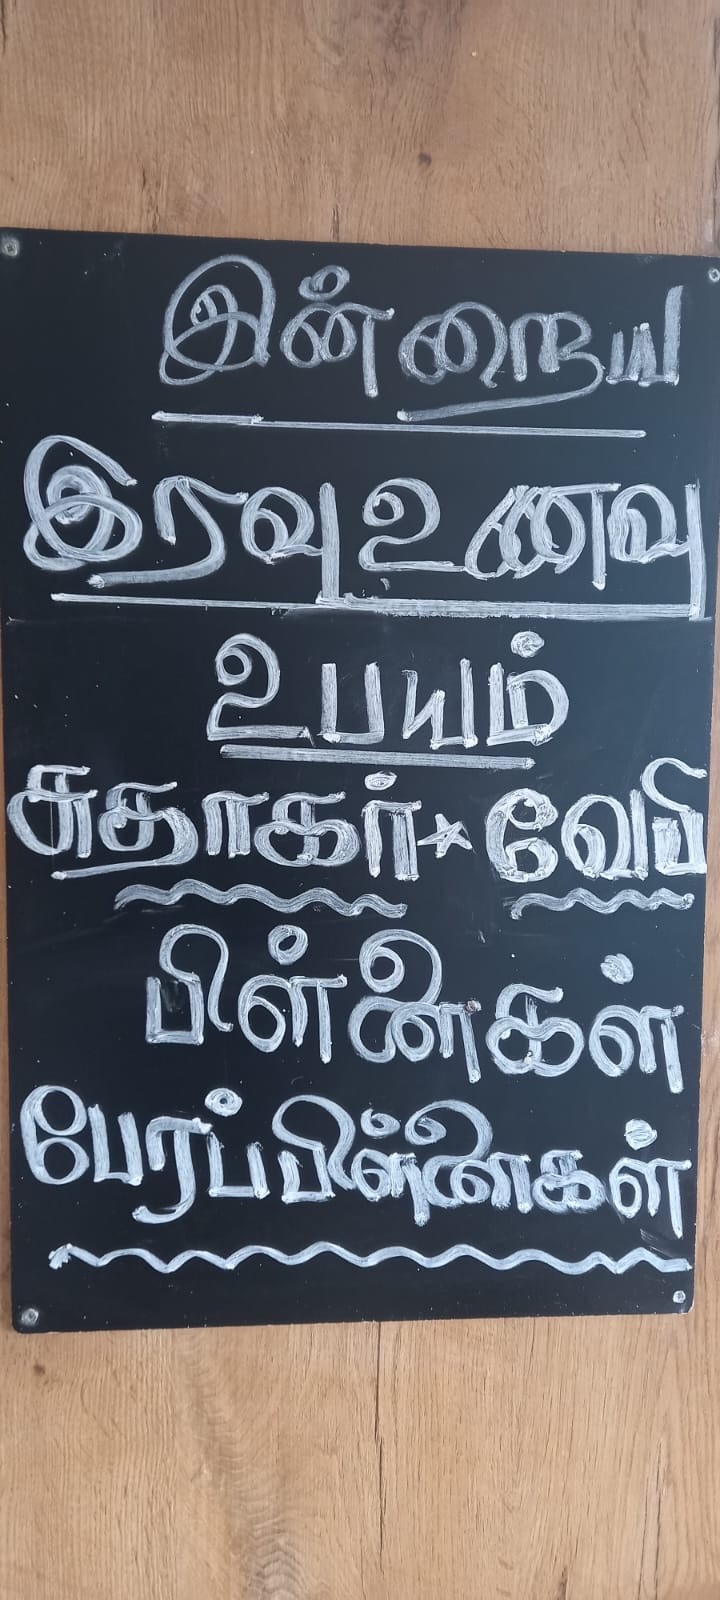 இன்றைய
இரவு உணவு
உபயம்
சுதாகர் ★ வேபி
பிள்ளைகள்
பேரப்பிள்ளைகள்